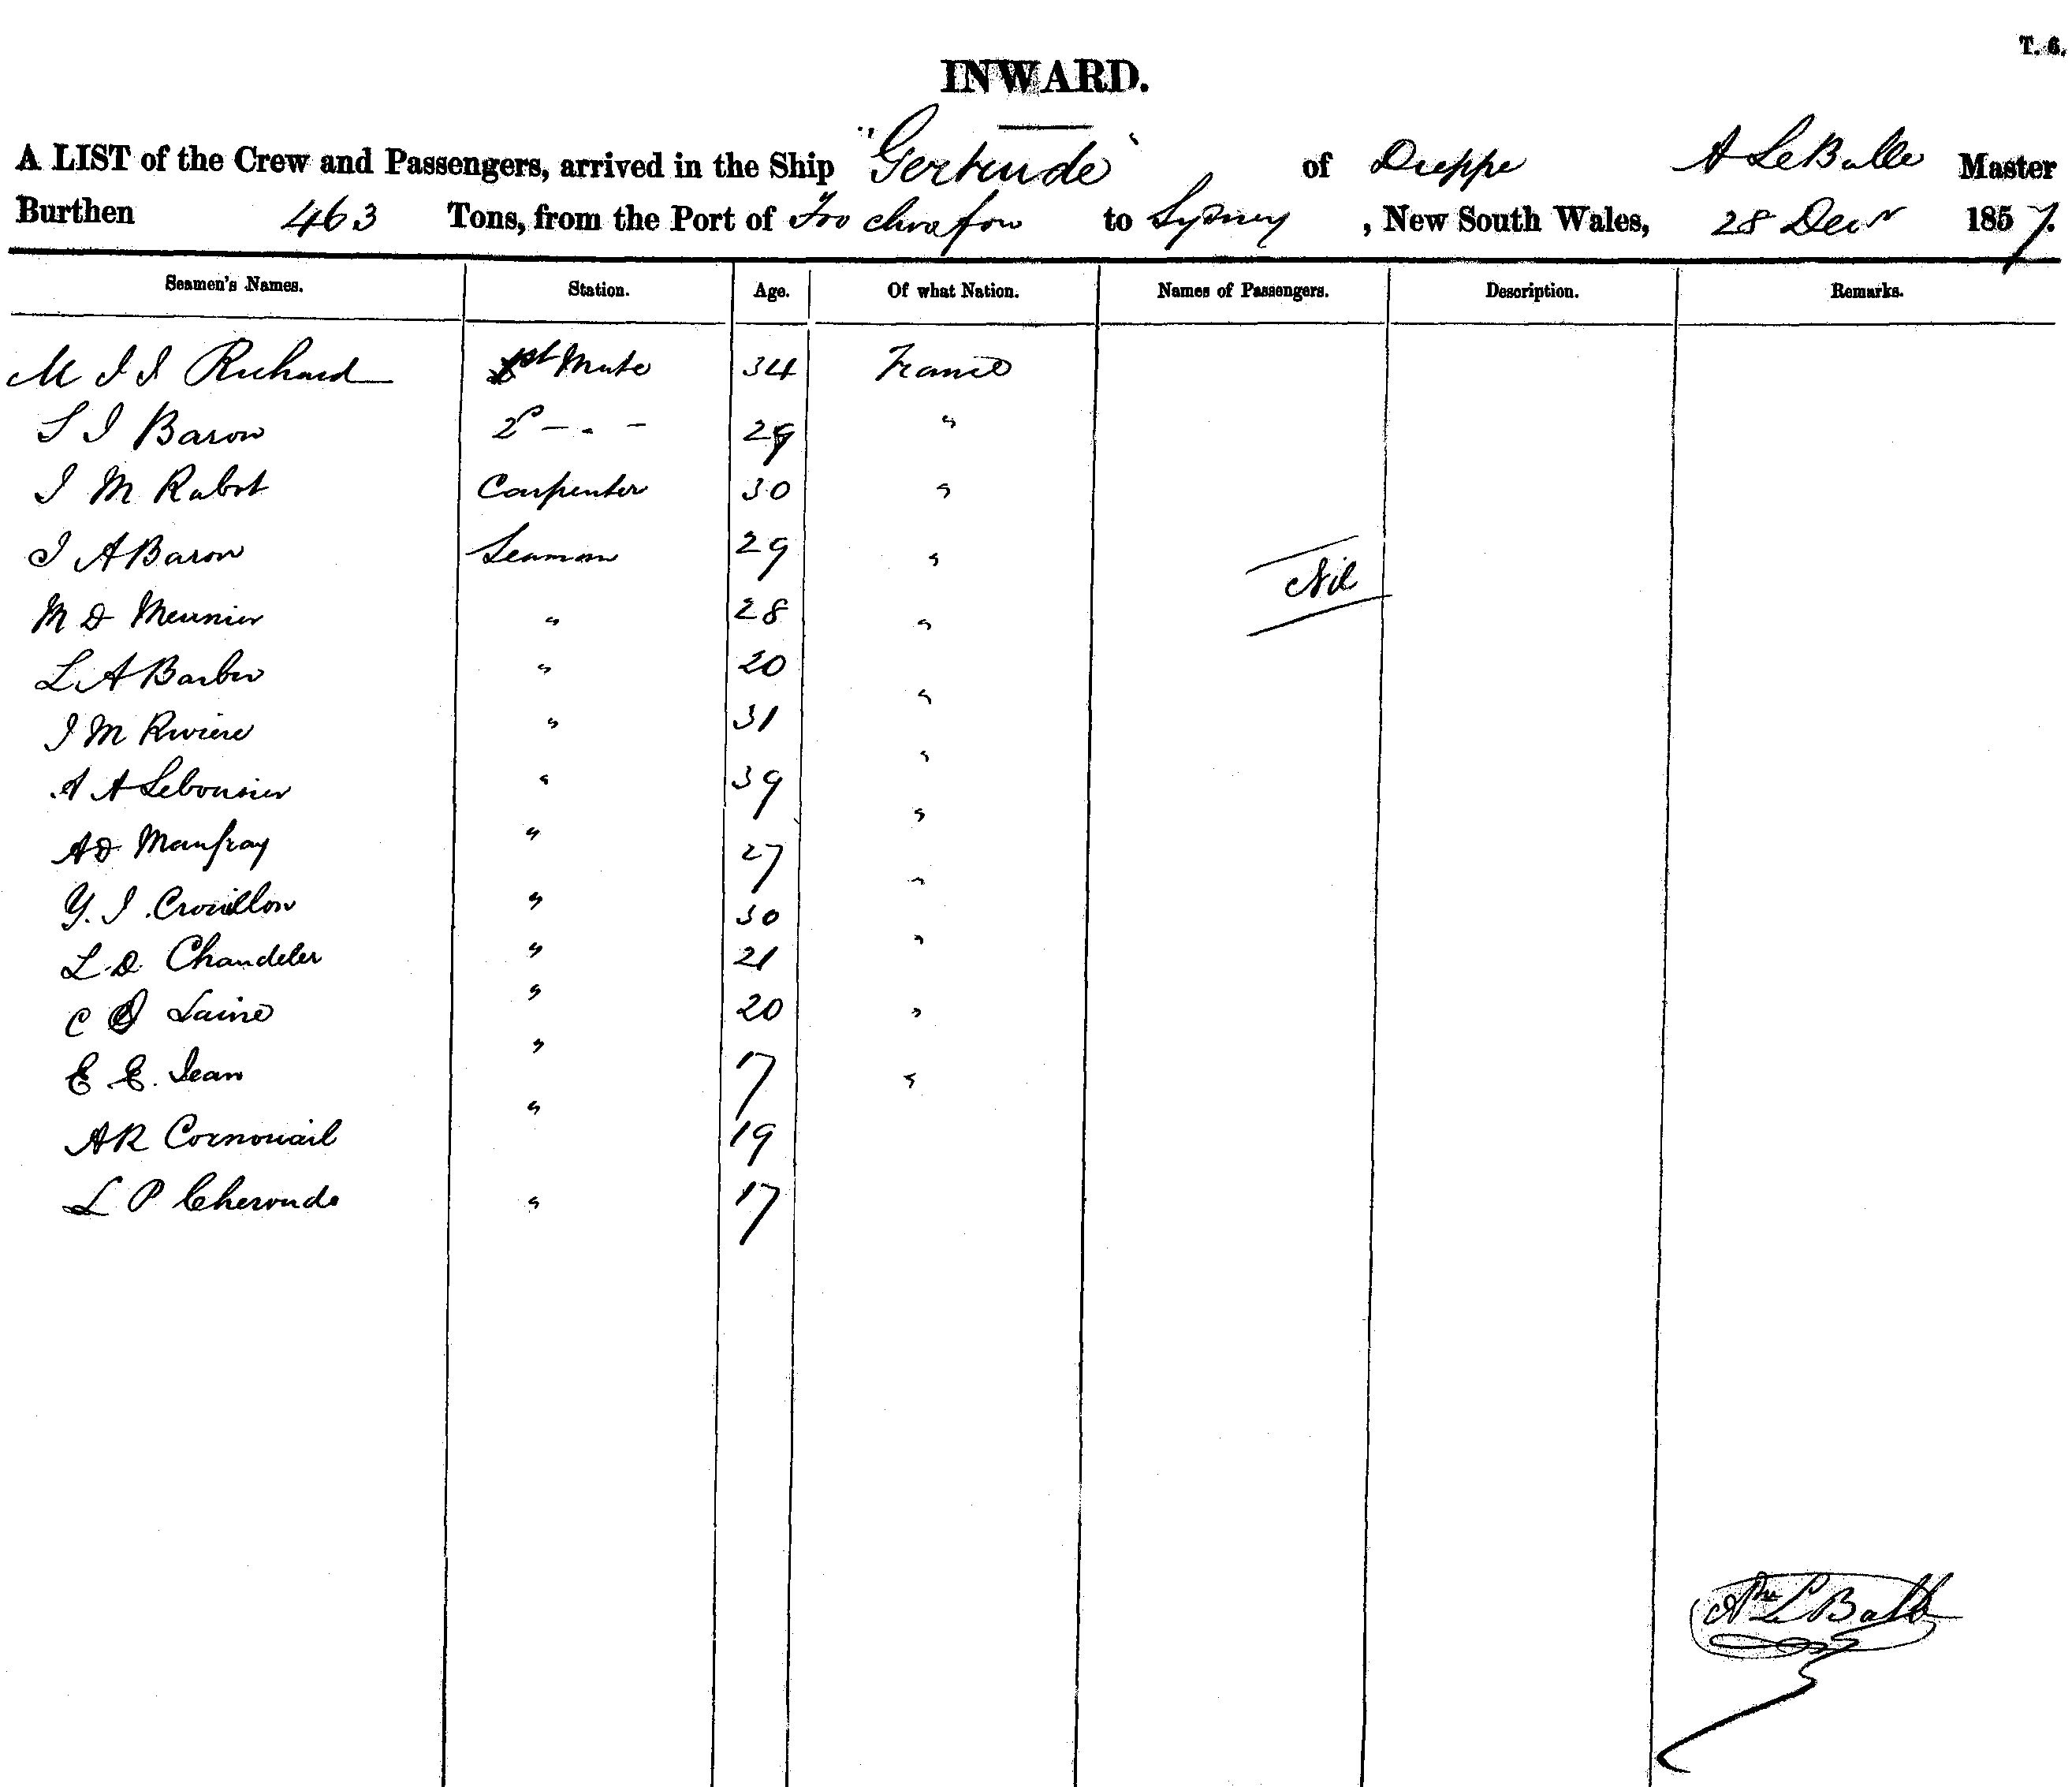 T. 6.
INWARD.
A LIST of the Crew and Passengers, arrived in the Ship "Gertrude" of Dieppe A LeBalle Master
Burthen 463 Tons, from the Port of Foo chow foo to Sydney, New South Wales, 28 Decr 1857.
Seamen's Names. Station. Age. Of what Nation. Names of Passengers. Description. Remarks.
M J J Richard 1st Mate 34 France
S J Baron 2d - . - 29 "
J M Rabot Carpenter 30 "
J A Baron Seaman 29 "
Nil
M D Meunier " 28 "
L A Barber " 20 "
J M Riviere " 31 "
A A Lebourier " 39 "
A D Manfray " 27 "
Y. J. Crouillon " 30 "
L. D. Chandeler " 21 "
C J Laine " 20 "
E. E. Jean " 17 "
A R Cornouail " 19
L P Cheronde " 17